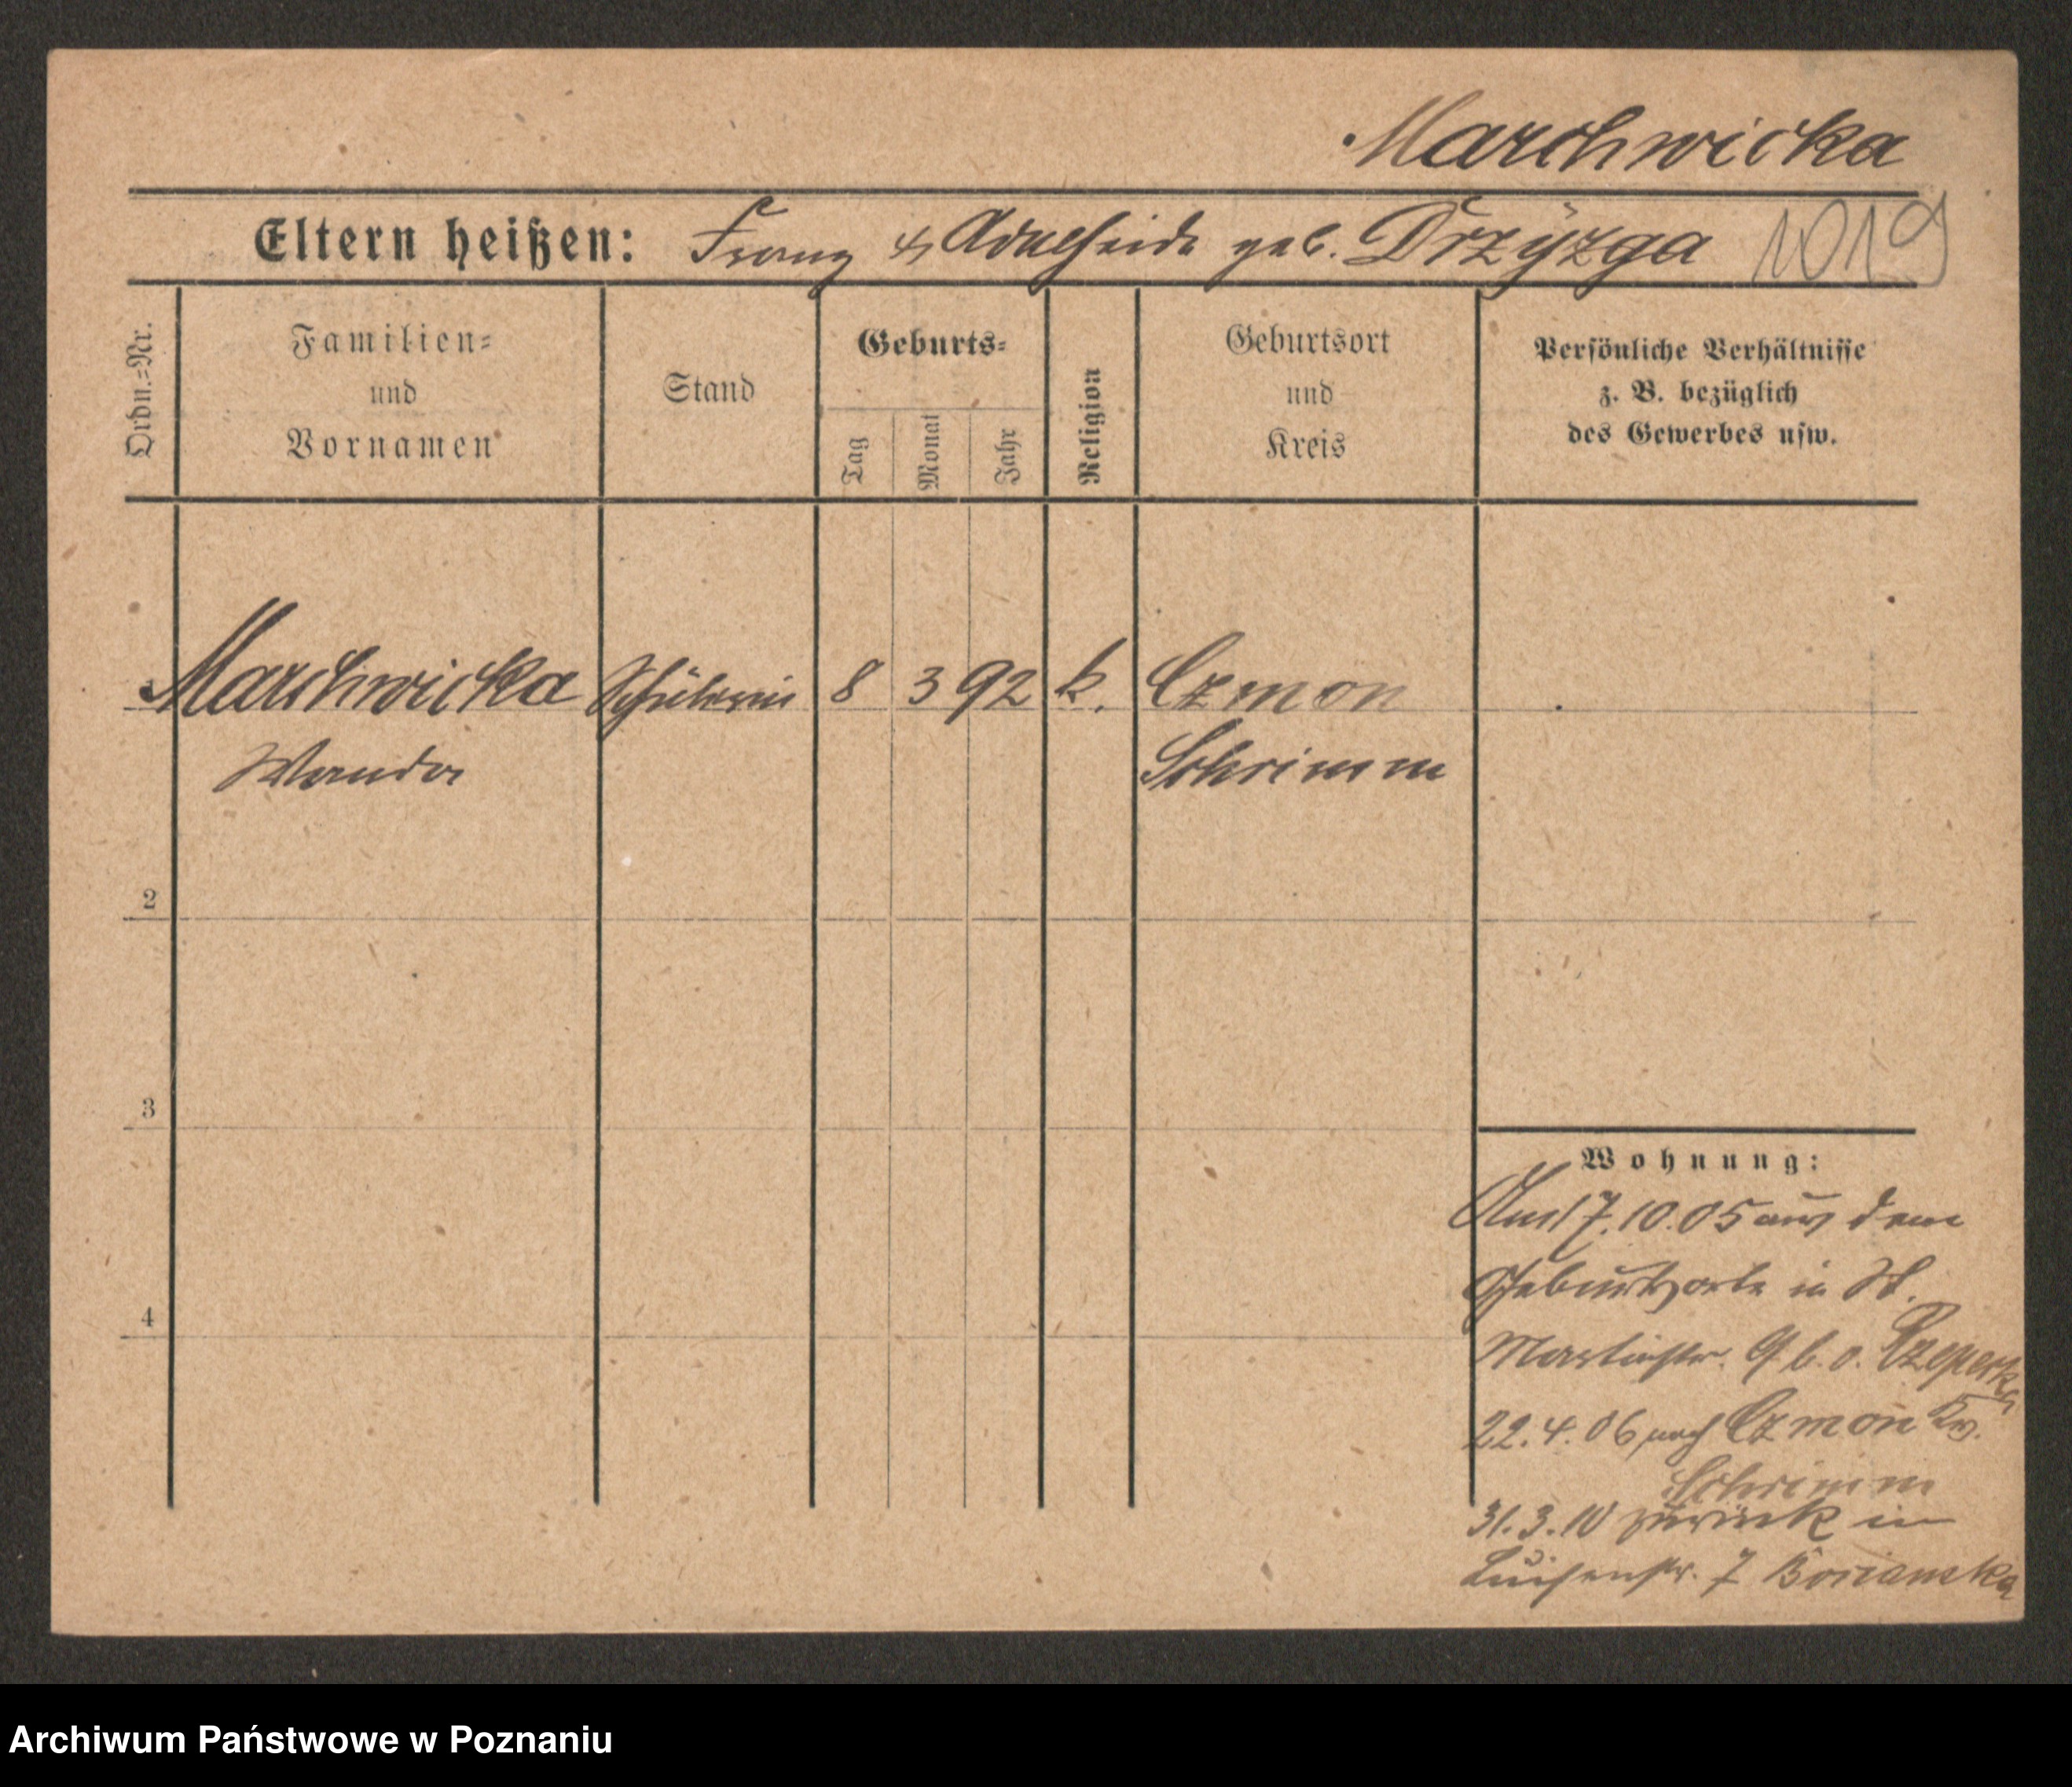 Marchwicka
Eltern heißen: Franz & Adelheide geb. Drzyzga 1019
Ordn.-Nr.
Familien-
und
Vornamen
Stand
Geburts-
Tag
Monat
Jahr
Religion
Geburtsort
und
Kreis
Persönliche Verhältnisse
z. B. bezüglich
des Gewerbes usw.
1 Marchwicka Schülerin 8 3 92 k. Czmon
Wanda Schrimm
2
3
4
Wohnung:
Am 17.10.05 aus dem
Geburtsorte in St.
Martinstr. 9 b. o.
22.4.06 nach Czmon Kr.
Schrimm
31.3.10 zurück in
Luisenstr. 7
Archiwum Państwowe w Poznaniu